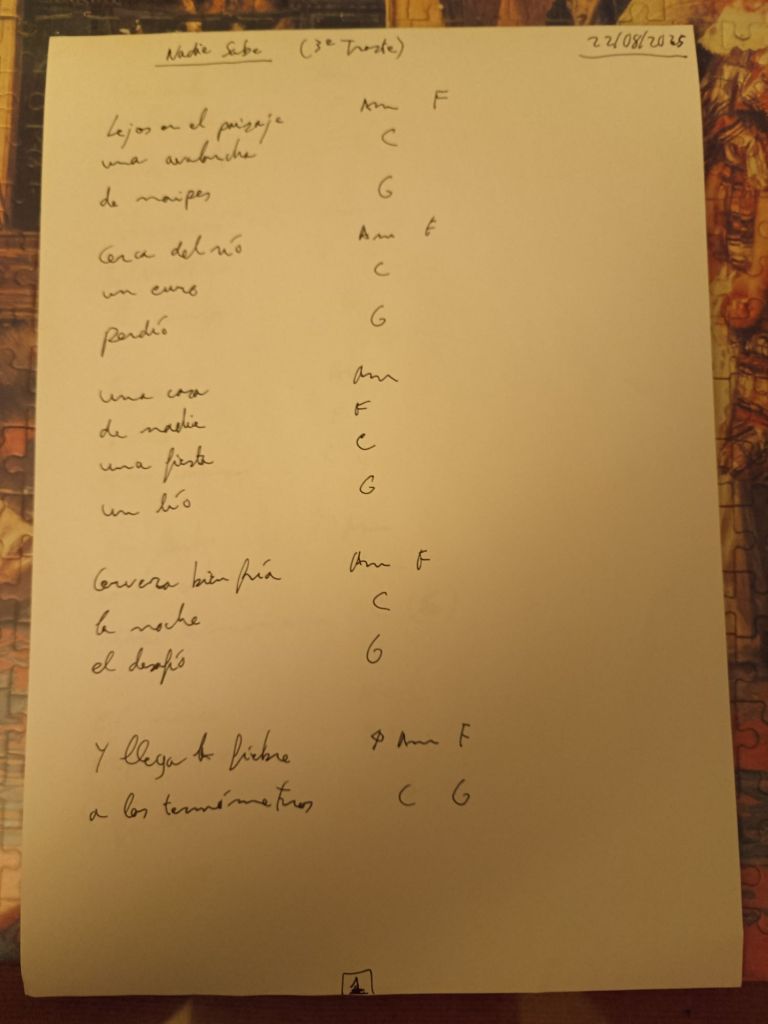 Nadie Sabe (3er Traste) 22/08/2025
Lejos en el paisaje Am F
una avalancha C
de naipes G
Cerca del río Am F
un euro C
perdió G
una casa Am
de nadie F
una fiesta C
un lío G
Cerveza bien fría Am F
la noche C
el desafío G
Y llega la fiebre Am F
a los termómetros C G
1